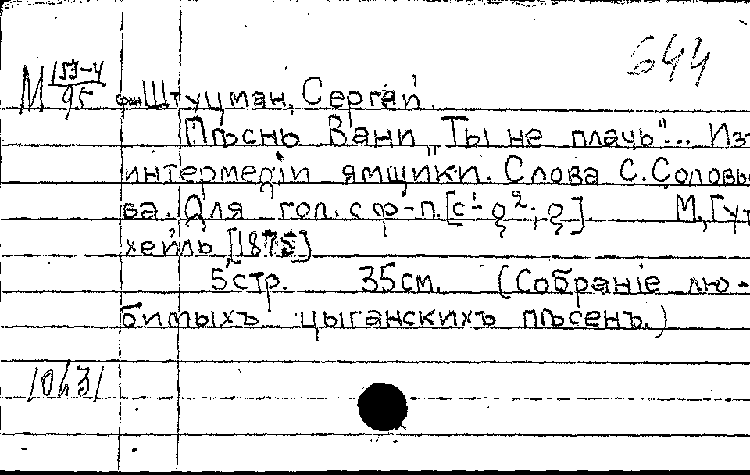 644
М 153-4/95
Штуцман, Сергей.
Пѣснь Вани „Ты не плачь"... Из
интермедіи „ямщики". Слова С. Соловь
ва. Для гол. с ф-п. [c¹-g²; g]. М, Гут
хейль [1875]
5 стр. 35 см. (Собраніе лю-
бимыхъ цыганскихъ пѣсенъ.)
10431